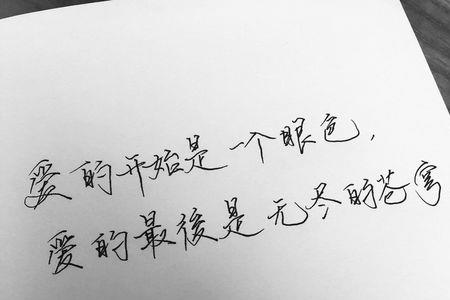 爱的开始是一个眼色,
爱的最後是无尽的苍穹